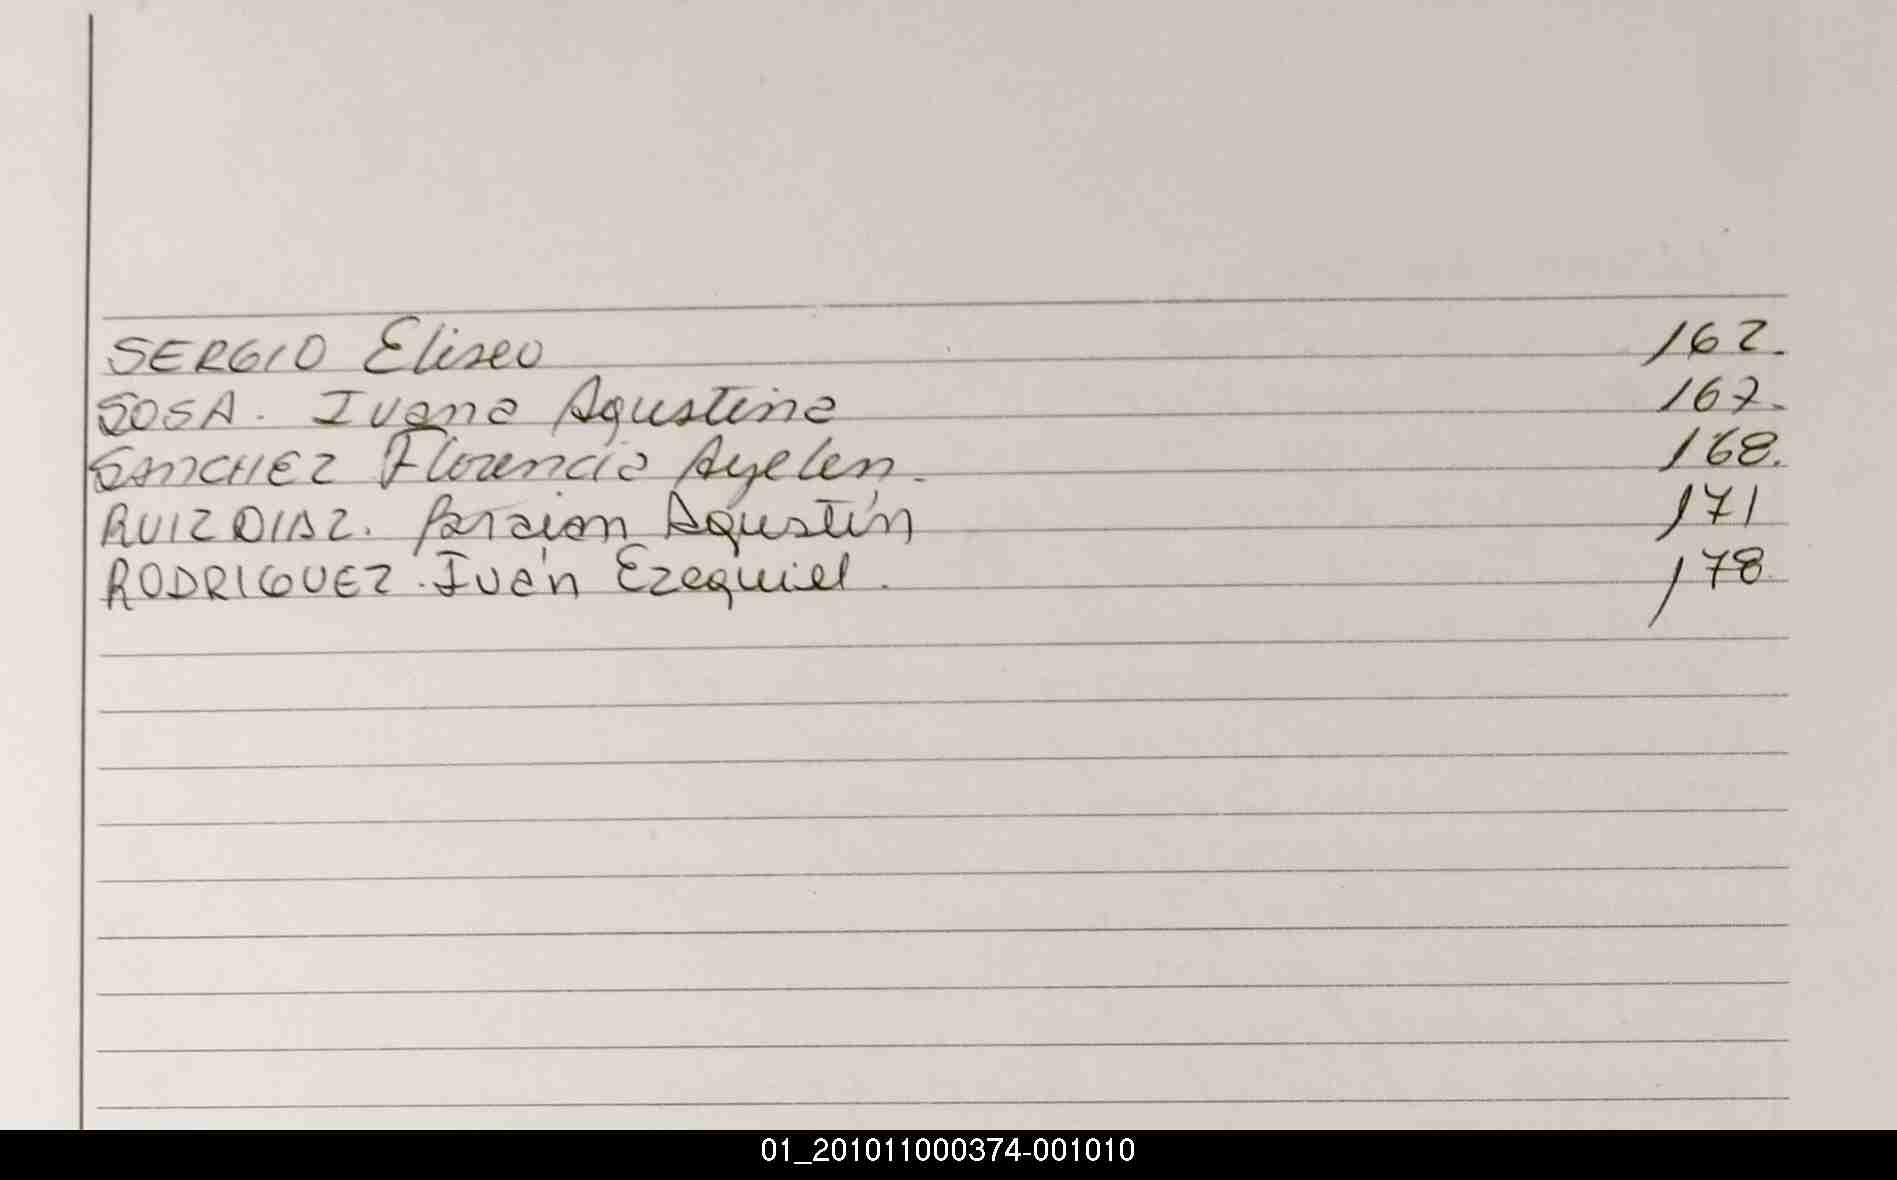 SERGIO Eliseo 162.
SOSA. Ivana Agustina 167.
SANCHEZ Florencia Ayelen. 168.
RUIZ DIAZ. Agustín 171
RODRIGUEZ. Iván Ezequiel. 178.
01_201011000374-001010